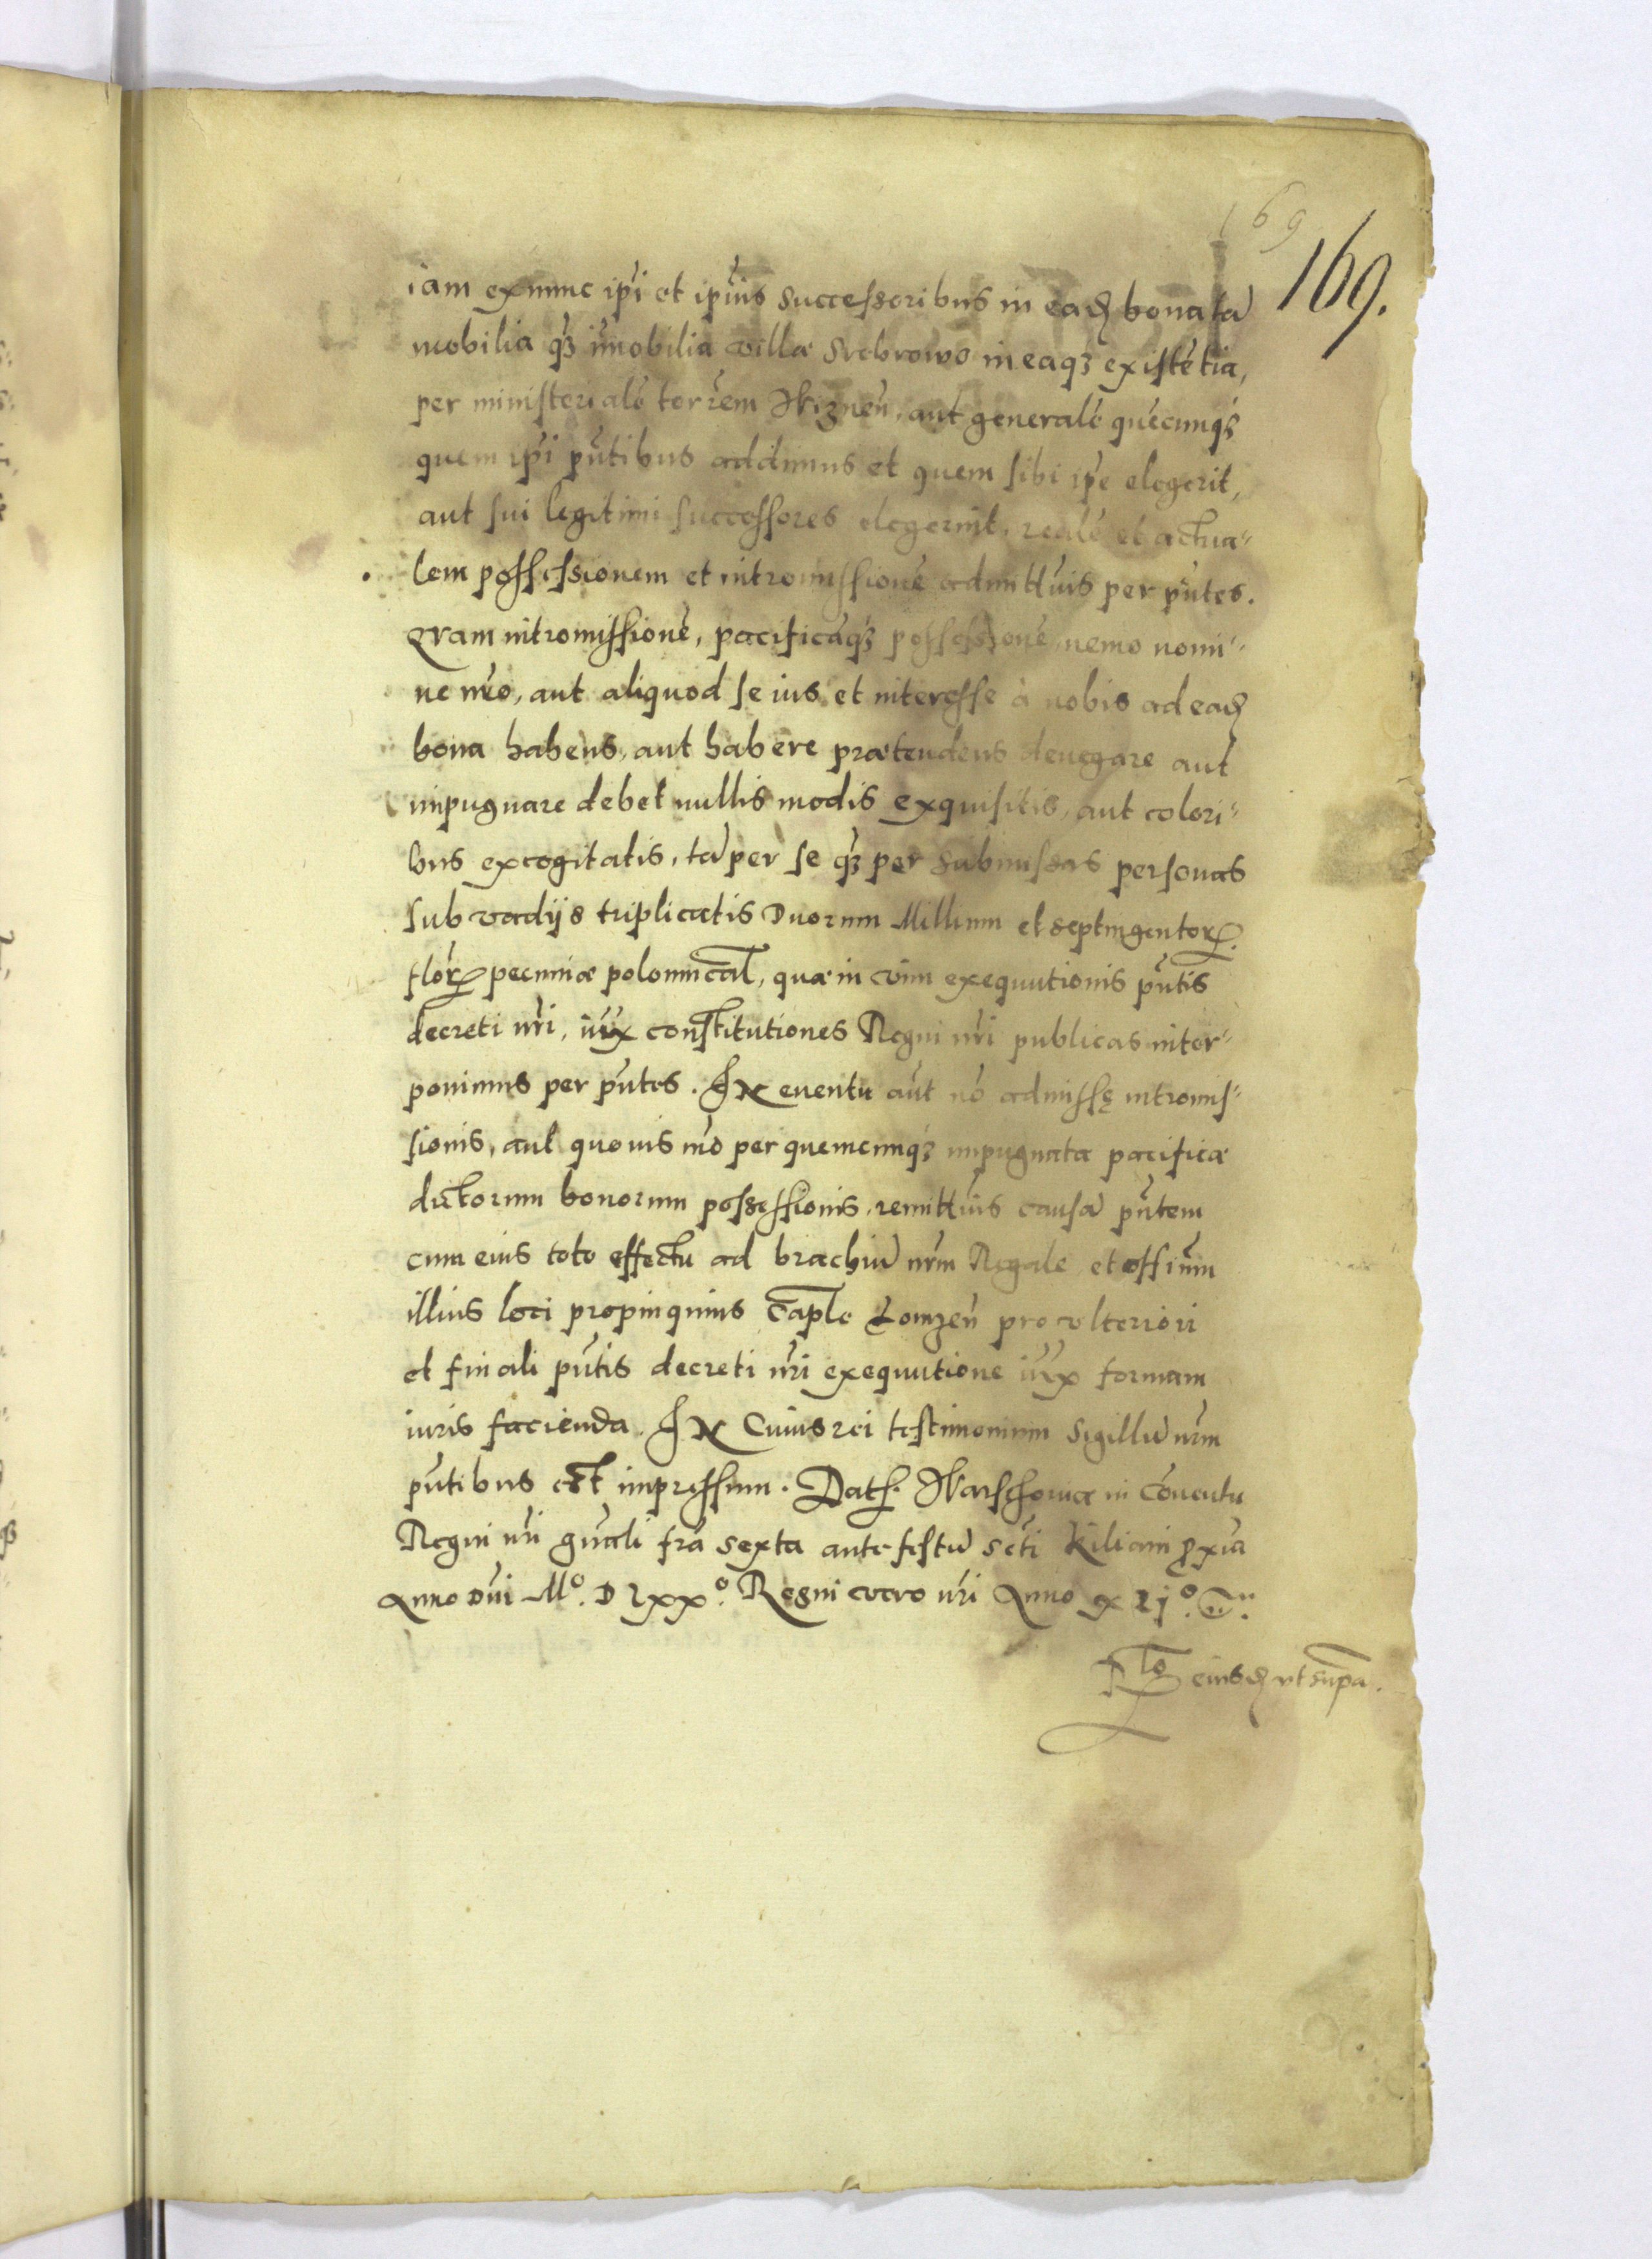 169
169.
iam ex nunc ip̃i et ip̃ius successoribus in eađ bona tã
mobilia q̃ꝫ im̃obilia villæ Srebrowo in eaqꝫ existẽtia,
per ministerialẽ terr̃em Wiznẽn̄, aut generalẽ quẽcunqꝫ
quem ip̃i pñtibus addimus et quem sibi ip̃e elegerit,
aut sui legitimi successores elegerint, realẽ et actua⸗
lem possessionem et intromissionẽ admittim̃s per pñtes.
Qvam intromissionẽ, pacificãqꝫ possessionẽ, nemo nomi⸗
ne nr̃o, aut aliquod se ius et interesse à nobis ad eađ
bona habens, aut habere prætendens denegare aut
impugnare debet nullis modis exquisitis, aut colori⸗
bus excogitatis, tã per se q̃ꝫ per submissas personas
sub vadijs triplicatis Duorum Millium et septingentorꝝ
florꝝ pecuniæ polonical̃, quæ in vim exequutionis pñtis
decreti nr̃i, iux̃ constitutiones Regni nr̃i publicas inter⸗
ponimus per pñtes. In euentu aũt nõ admissę intromis⸗
sionis, aut quouis mõ per quemcunqꝫ impugnatæ pacificæ
dictorum bonorum possessionis, remittim̃s causã pñtem
cum eius toto effectu ad brachiũ nr̃m Regale et offic̃im
illius loci propinquius Cap̃le Łomzen̄ pro vlteriori
et finali pñtis decreti nr̃i exequutione iux̃ formam
iuris facienda. In Cuius rei testimonium Sigillũ nr̃m
pñtibus est impressum. Dat̃. Warschouiæ in Cõuentu
Regni nr̃i gñali fr̃a sexta ante festũ scti Kiliani ꝓxĩa
Anno Dñi M⁰. D lxx⁰. Regni vero nr̃i Anno xli⁰.
eiusđ vt sup̃a.